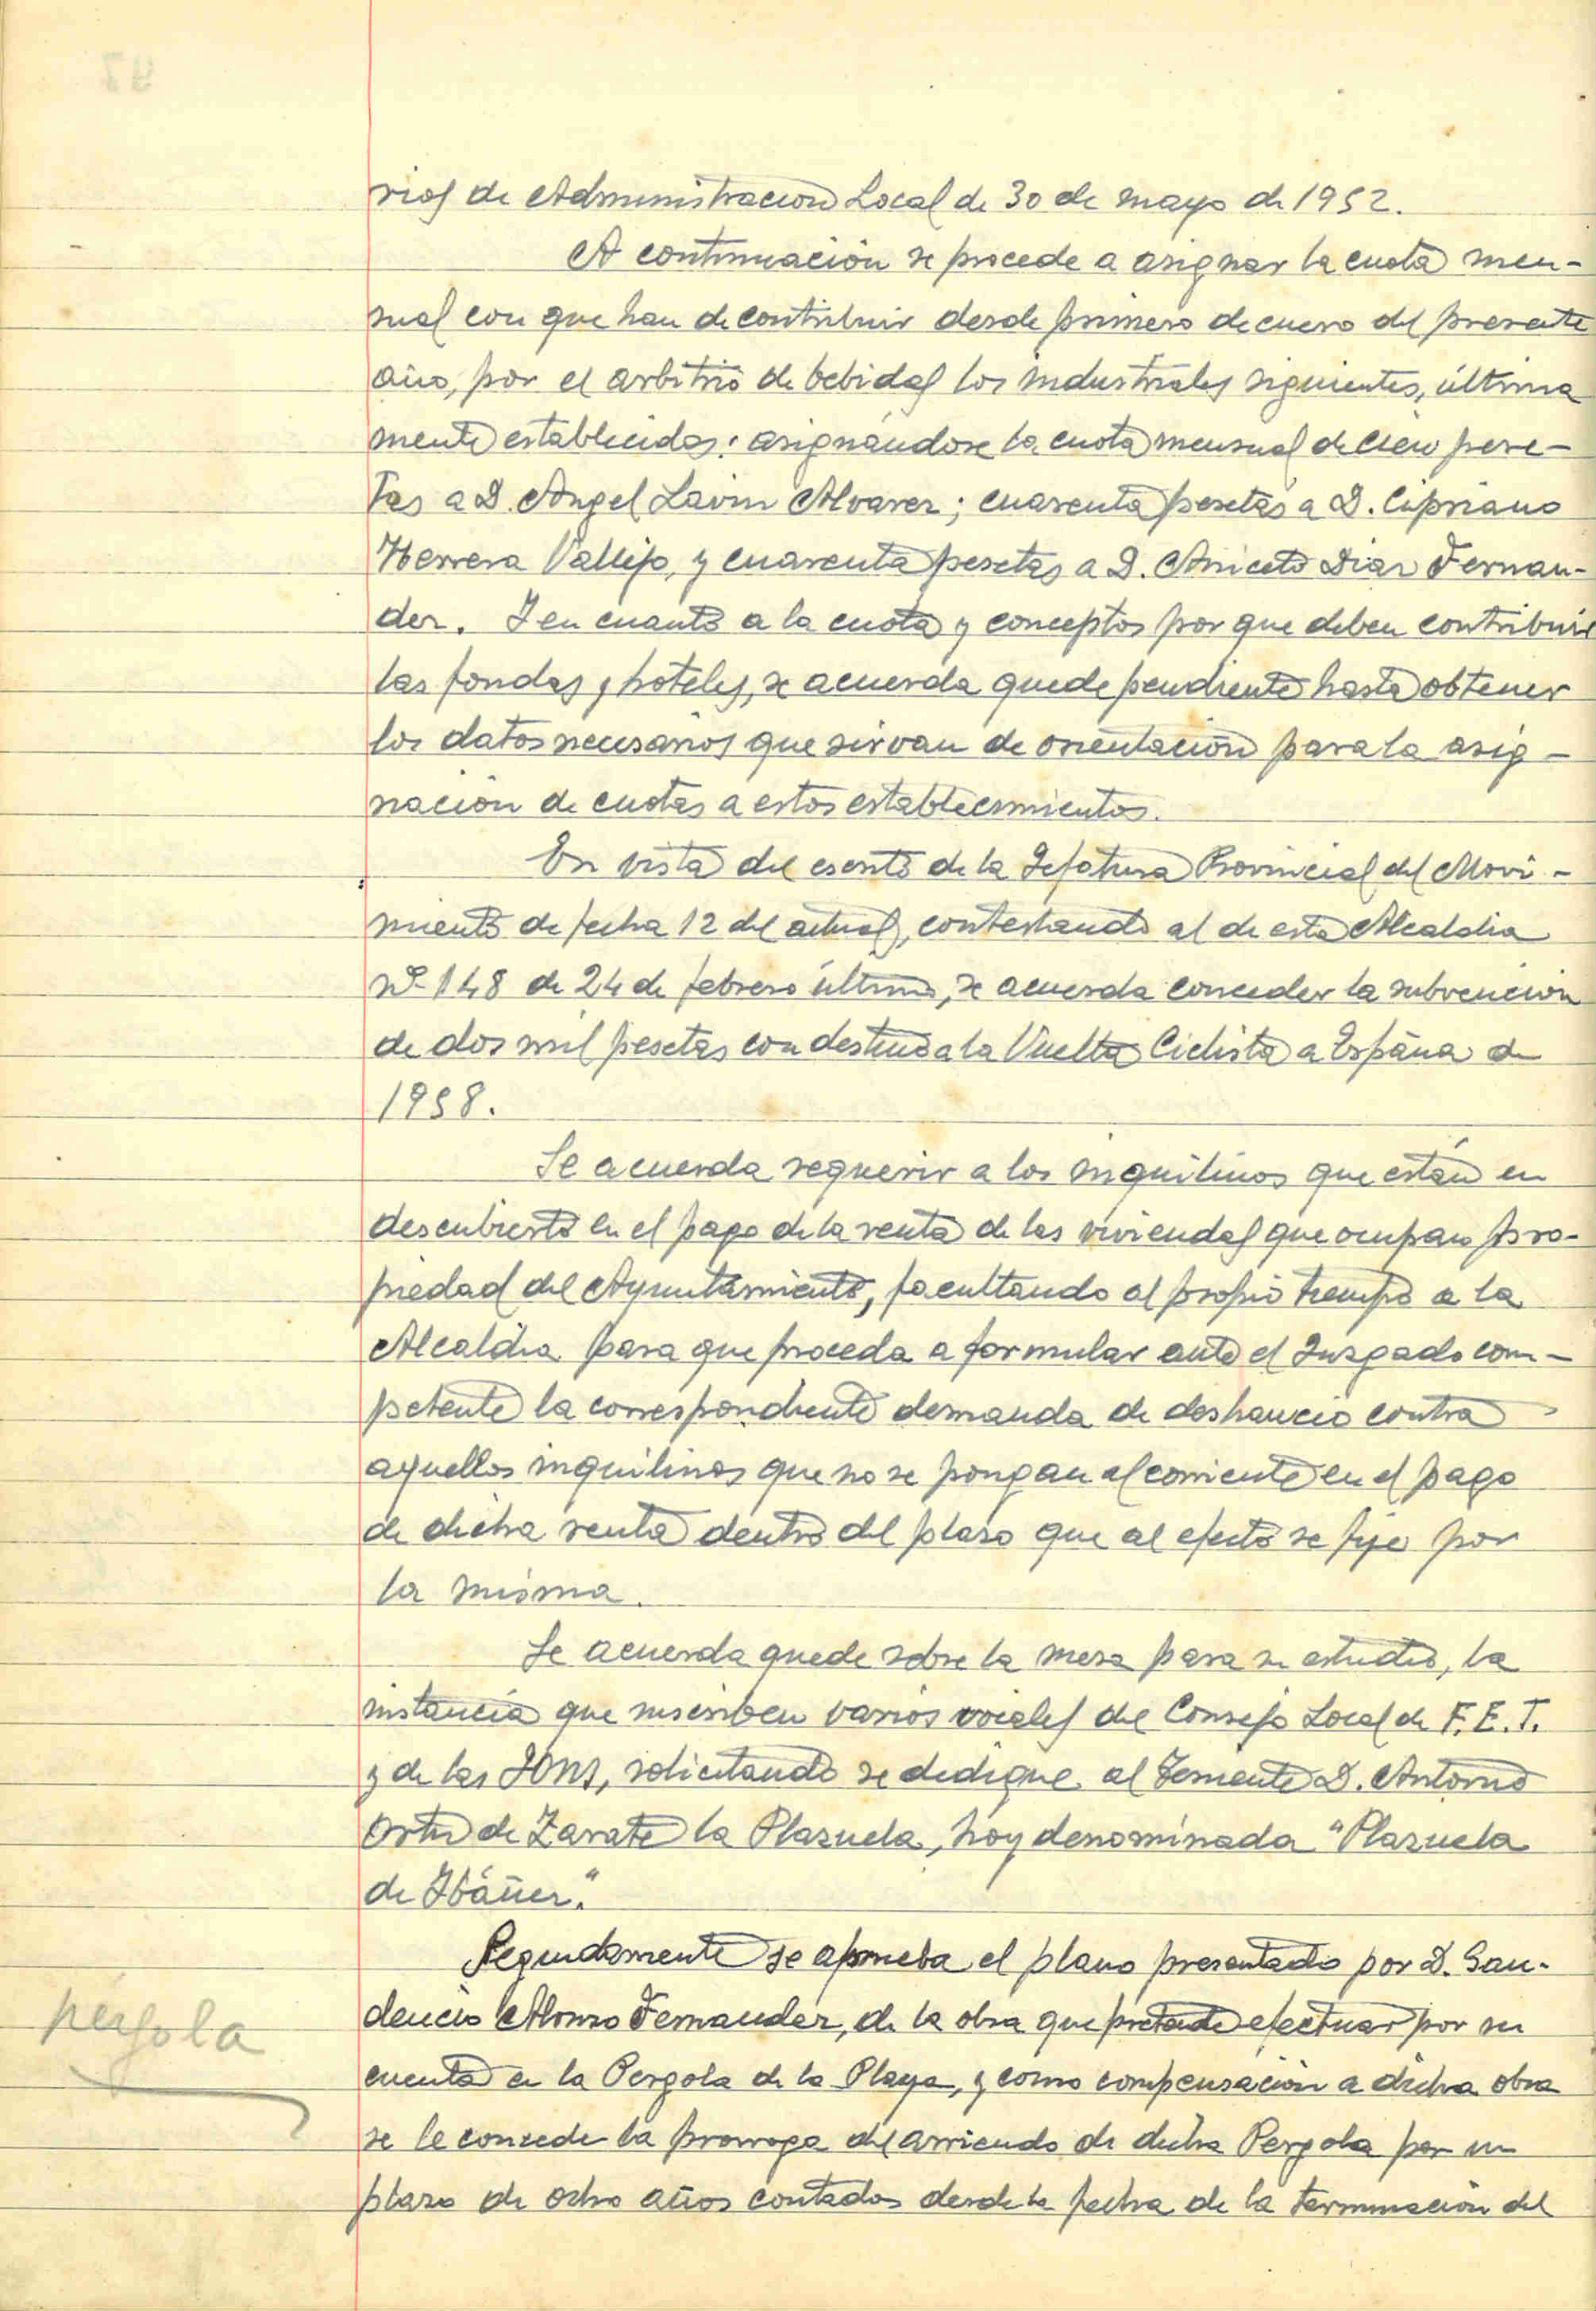 rios de Administracion Local de 30 de mayo de 1952.
A continuación se procede a asignar la cuota men-
sual con que han de contribuir desde primero de enero del presente
año, por el arbitrio de bebidas los industriales siguientes, última
mente establecidos: asignándose la cuota mensual de cien pese-
tas a D. Angel Lavin Alvarez; cuarenta pesetas a D. Cipriano
Herrera Vallejo, y cuarenta pesetas a D. Aniceto Diaz Fernan-
dez. Y en cuanto a la cuota y conceptos por que deben contribuir
las fondas y hoteles, se acuerda quede pendiente hasta obtener
los datos necesarios que sirvan de orientación para la asig-
nación de cuotas a estos establecimientos.
En vista del escrito de la Jefatura Provincial del Movi-
miento de fecha 12 del actual, contestando al de esta Alcaldia
nº 148 de 24 de febrero último, se acuerda conceder la subvención
de dos mil pesetas con destino a la Vuelta Ciclista a España de
1958.
Se acuerda requerir a los inquilinos que están en
descubierto en el pago de la renta de las viviendas que ocupan pro-
piedad del Ayuntamiento, facultando al propio tiempo a la
Alcaldia para que proceda a formular ante el Juzgado com-
petente la correspondiente demanda de deshaucio contra
aquellos inquilinos que no se pongan al corriente en el pago
de dicha renta dentro del plazo que al efecto se fije por
la misma.
Se acuerda quede sobre la mesa para su estudio, la
instancia que suscriben varios vocales del Consejo Local de F.E.T.
y de las JONS, solicitando se dedique al Teniente D. Antonio
Ortiz de Zarate la Plazuela, hoy denominada "Plazuela
de Ibáñez."
Seguidamente se aprueba el plano presentado por D. Gau-
dencio Alonso Fernandez, de la obra que pretende efectuar por su
cuenta en la Pergola de la Playa, y como compensación a dicha obra
se le concede la prorroga del arriendo de dicha Pergola por un
plazo de ocho años contados desde la fecha de la terminación del
pérgola